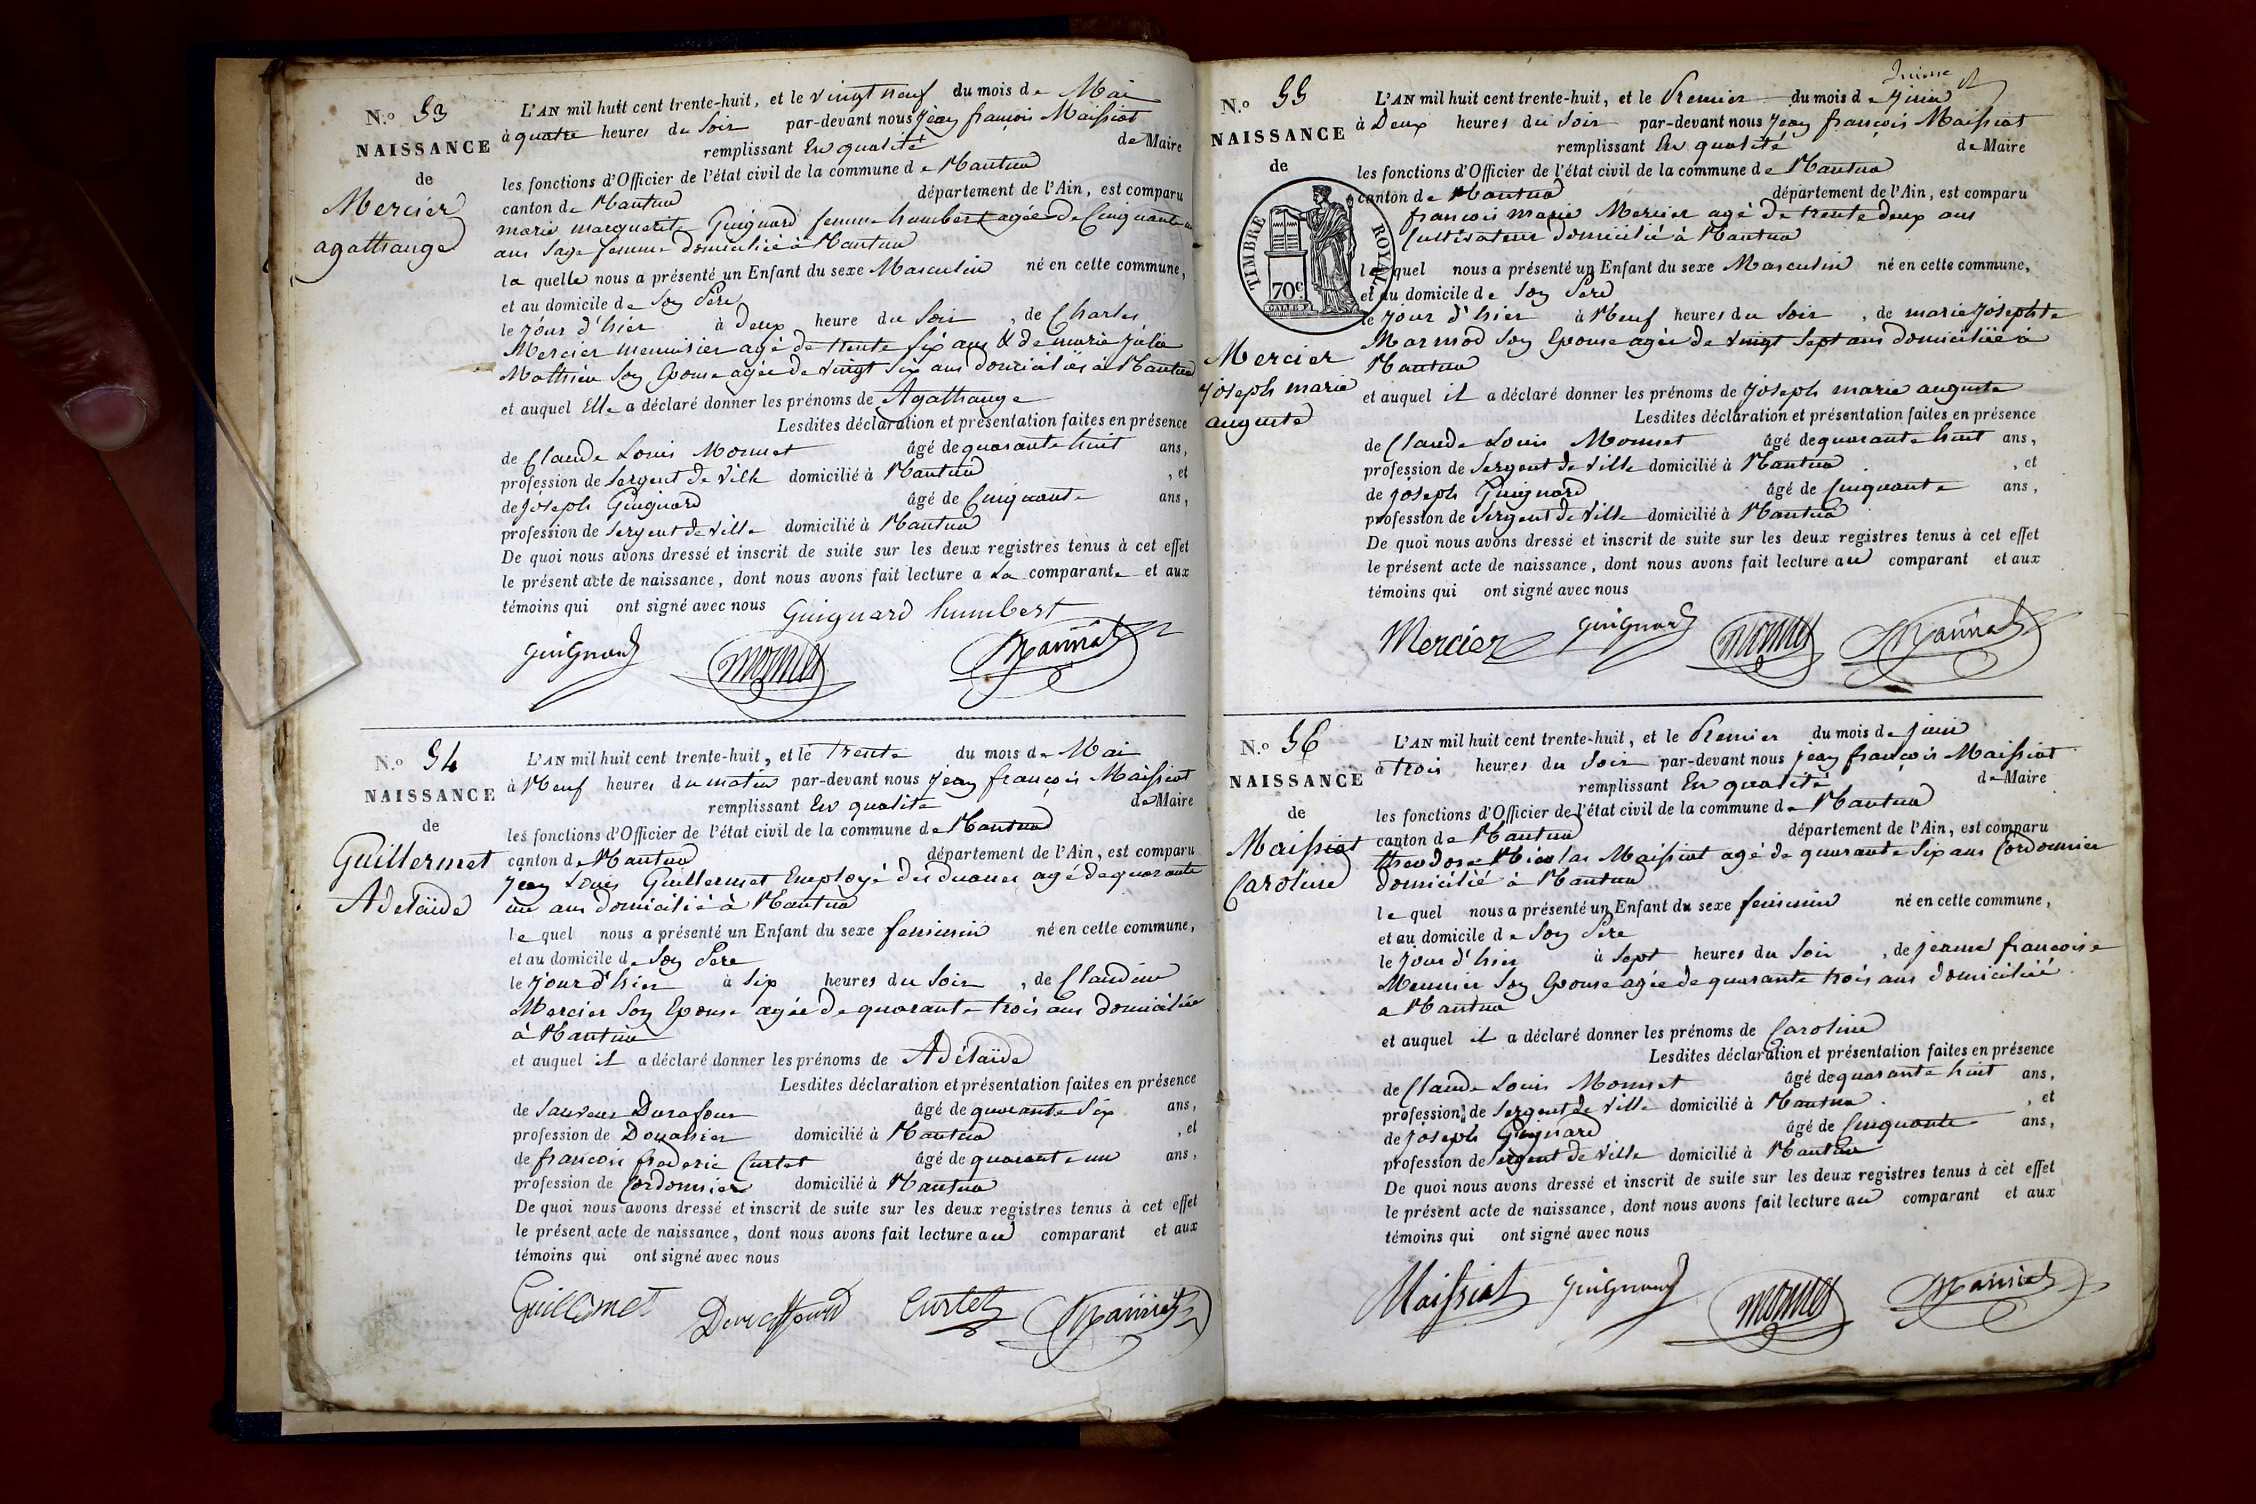 N.o 53
NAISSANCE
de
Mercier
agathange
L'AN mil huit cent trente-huit, et le vingt neuf du mois de Mai
à quatre heures du Soir par-devant nous jean françois Maissiat
remplissant En qualité de Maire
les fonctions d'Officier de l'état civil de la commune de Nantua
canton de Nantua département de l'Ain, est comparu
marie marguerite Guignard femme humbert agée de Cinquante un
ans Sage femme domiciliée à Nantua
la quelle nous a présenté un Enfant du sexe Masculin né en cette commune,
et au domicile de Son Père
le jour d'hier à deux heure du Soir , de Charles
Mercier menuisier agé de trente six ans & de marie julie
Mathieu Son Epouse agée de vingt six ans domiciliés à Nantua
et auquel Elle a déclaré donner les prénoms de Agathange
Lesdites déclaration et présentation faites en présence
de Claude Louis Monnet âgé de quarante huit ans,
profession de Sergent de Ville domicilié à Nantua , et
de joseph Guignard âgé de Cinquante ans,
profession de Sergent de Ville domicilié à Nantua
De quoi nous avons dressé et inscrit de suite sur les deux registres tenus à cet effet
le présent acte de naissance, dont nous avons fait lecture a La comparante et aux
témoins qui ont signé avec nous Guignard humbert
Guignard Monnet Maissiat
N.o 54
NAISSANCE
de
Guillermet
Adelaïde
L'AN mil huit cent trente-huit, et le Trente du mois de Mai
à Neuf heures du matin par-devant nous jean françois Maissiat
remplissant En qualité de Maire
les fonctions d'Officier de l'état civil de la commune de Nantua
canton de Nantua département de l'Ain, est comparu
jean Louis Guillermet Employé des duanes agé de quarante
un ans domicilié à Nantua
le quel nous a présenté un Enfant du sexe feminin né en cette commune,
et au domicile de Son Père
le jour d'hier à Six heures du Soir , de Claudine
Mercier Son Epouse agée de quarante trois ans domiciliée
à Nantua
et auquel il a déclaré donner les prénoms de Adélaïde
Lesdites déclaration et présentation faites en présence
de Sauveur Durafour âgé de quarante Six ans,
profession de Douanier domicilié à Nantua , et
de françois frederic Curtet âgé de quarante un ans,
profession de Cordonnier domicilié à Nantua
De quoi nous avons dressé et inscrit de suite sur les deux registres tenus à cet effet
le présent acte de naissance, dont nous avons fait lecture au comparant et aux
témoins qui ont signé avec nous
Guillermet Curtet Maissiat
N.o 55
NAISSANCE
de
TIMBRE ROYAL
70c
Mercier
joseph marie
auguste
L'AN mil huit cent trente-huit, et le Premier du mois de juin
à Deux heures du Soir par-devant nous jean françois Maissiat
remplissant En qualité de Maire
les fonctions d'Officier de l'état civil de la commune de Nantua
canton de Nantua département de l'Ain, est comparu
françois marie Mercier agé de trente deux ans
Cultivateur domicilié à Nantua
le quel nous a présenté un Enfant du sexe Masculin né en cette commune,
et au domicile de Son Père
le jour d'hier à Neuf heures du Soir , de marie josephte
Marmod Son Epouse agée de vingt Sept ans domiciliée à
Nantua
et auquel il a déclaré donner les prénoms de joseph marie auguste
Lesdites déclaration et présentation faites en présence
de Claude Louis Monnet âgé de quarante huit ans,
profession de Sergent de Ville domicilié à Nantua , et
de joseph Guignard âgé de Cinquante ans,
profession de Sergent de Ville domicilié à Nantua
De quoi nous avons dressé et inscrit de suite sur les deux registres tenus à cet effet
le présent acte de naissance, dont nous avons fait lecture au comparant et aux
témoins qui ont signé avec nous
Mercier Guignard Monnet Maissiat
N.o 56
NAISSANCE
de
Maissiat
Caroline
L'AN mil huit cent trente-huit, et le Premier du mois de juin
à trois heures du Soir par-devant nous jean françois Maissiat
remplissant En qualité de Maire
les fonctions d'Officier de l'état civil de la commune de Nantua
canton de Nantua département de l'Ain, est comparu
theodose Nicolas Maissiat agé de quarante Six ans Cordonnier
domicilié à Nantua
le quel nous a présenté un Enfant du sexe feminin né en cette commune,
et au domicile de Son Père
le jour d'hier à Sept heures du Soir , de jeanne françoise
Meunier Son Epouse agée de quarante trois ans domiciliée
a Nantua
et auquel il a déclaré donner les prénoms de Caroline
Lesdites déclaration et présentation faites en présence
de Claude Louis Monnet âgé de quarante huit ans,
profession de Sergent de Ville domicilié à Nantua , et
de joseph Guignard âgé de Cinquante ans,
profession de Sergent de Ville domicilié à Nantua
De quoi nous avons dressé et inscrit de suite sur les deux registres tenus à cet effet
le présent acte de naissance, dont nous avons fait lecture au comparant et aux
témoins qui ont signé avec nous
Maissiat Guignard Monnet Maissiat